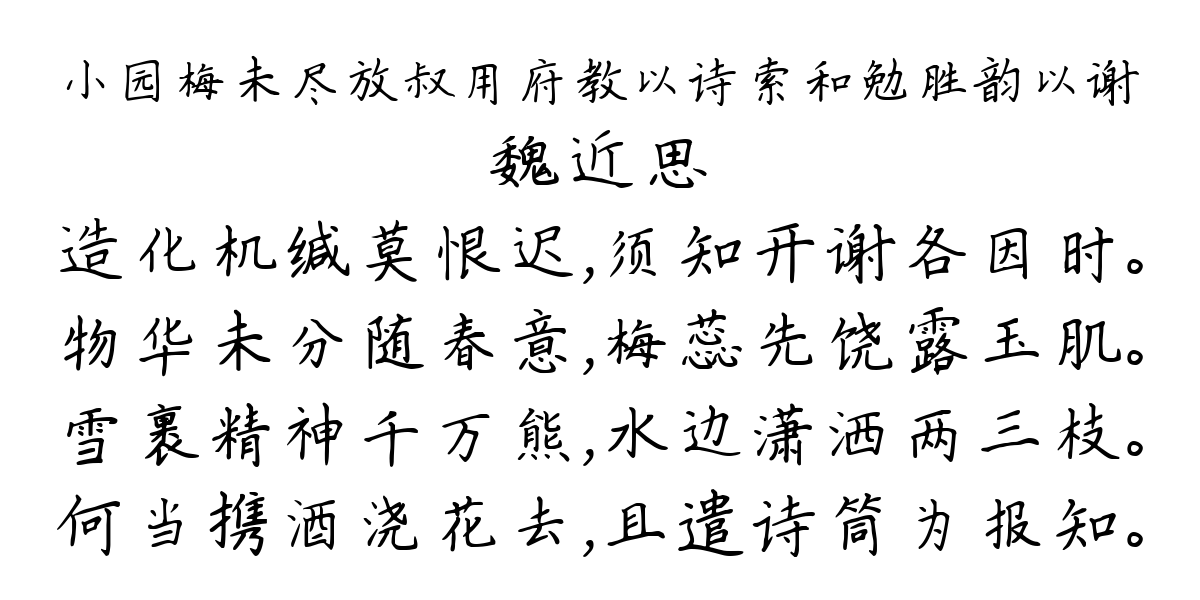 小园梅未尽放叔用府教以诗索和勉胜韵以谢
魏近思
造化机缄莫恨迟,须知开谢各因时。
物华未分随春意,梅蕊先饶露玉肌。
雪裹精神千万熊,水边潇洒两三枝。
何当携酒浇花去,且遣诗筒为报知。